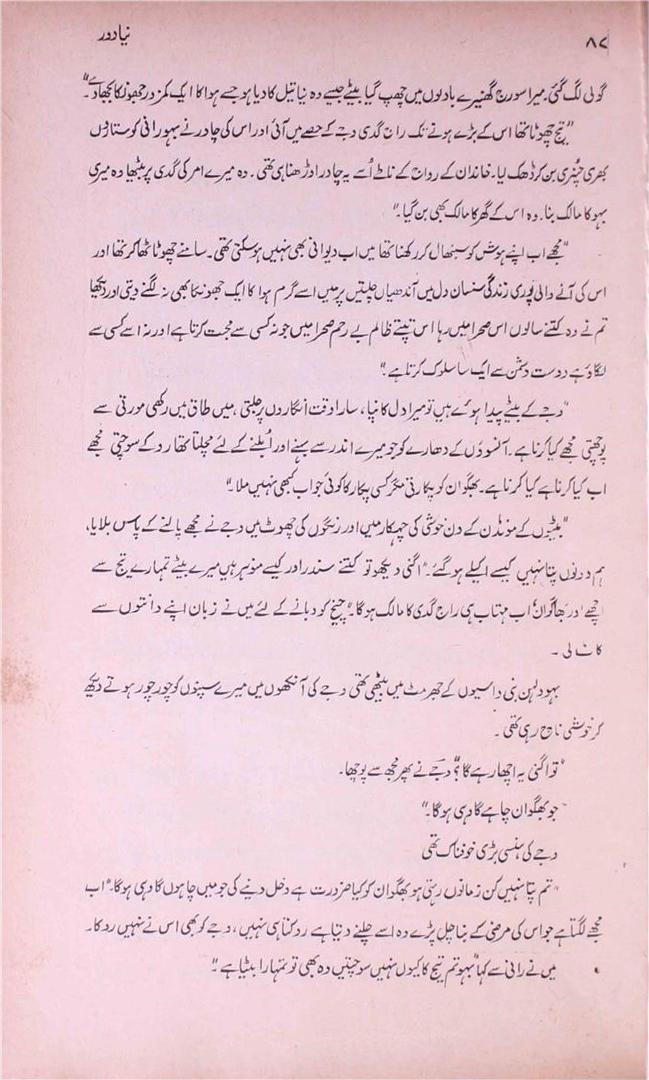 ۸۲
نیا دور
گولی لگ گئی۔ میرا سورج گھنیرے بادلوں میں چھپ گیا بیٹے جیسے دہ نیا تیل کا دیا ہو جسے ہوا کا ایک کمزور جھونکا بجھا دے۔"
"تیج چھوٹا تھا اس کے بڑے ہونے تک راج گدی وجے کے حصے میں آئی اور اس کی چادر نے بہو رانی کو ستاروں
بھری چنری بن کر ڈھک لیا۔ خاندان کے رواج کے ناطے اُسے یہ چادر اوڑھنا ہی تھی۔ وہ میرے امر کی گدی پر بیٹھا وہ میری
بہو کا مالک بنا۔ وہ اس کے گھر کا مالک بھی بن گیا۔"
"مجھے اب اپنے ہوش کو سنبھال کر رکھنا تھا میں اب دیوانی بھی نہیں ہو سکتی تھی۔ سامنے چھوٹا ٹھاکر تھا اور
اس کی آنے والی پوری زندگی سنسان دل میں آندھیاں چلتیں پر میں اسے گرم ہوا کا ایک جھونکا بھی نہ لگنے دیتی اور دیکھا
تم نے وہ کتنے سالوں اس صحرا میں رہا اس تپتے ظالم بے رحم صحرا میں جو نہ کسی سے محبت کرتا ہے اور نہ اسے کسی سے
لگاؤ ہے دوست دشمن سے ایک سا سلوک کرتا ہے۔"
"وجے کے بیٹے پیدا ہوئے ہیں تو میرا دل کانپا، سارا وقت انگاروں پر چلتی، میں طاق میں رکھی مورتی سے
پوچھتی مجھے کیا کرنا ہے۔ آنسوؤں کے دھارے کو جو میرے اندر سے بہنے اور اُبلنے کے لئے مچلتا تھا روکے سوچتی مجھے
اب کیا کرنا ہے کیا کرنا ہے۔ بھگوان کو پکارتی مگر کسی پکار کا کوئی جواب کبھی نہیں ملا۔"
"بیٹوں کے مونڈن کے دن خوشی کی چہکار میں اور رنگوں کی چھوٹ میں وجے نے مجھے پالنے کے پاس بلایا،
ہم دونوں پتا نہیں کیسے اکیلے ہو گئے۔" اگنی دیکھو تو کتنے سندر اور کیسے منوہر ہیں میرے بیٹے تمہارے تیج سے
اچھے اور بھاگوان، اب مہتاب ہی راج گدی کا مالک ہو گا۔" چیخ کو دبانے کے لئے میں نے زبان اپنے دانتوں سے
کاٹ لی۔
بہو دلہن بنی داسیوں کے جھرمٹ میں بیٹھی تھی وجے کی آنکھوں میں میرے سپنوں کو چور چور ہوتے دیکھ
کر خوشی ناچ رہی تھی۔
"تو اگنی یہ اچھا رہے گا؟" وجے نے پھر مجھ سے پوچھا۔
"جو بھگوان چاہے گا وہی ہو گا۔"
وجے کی ہنسی بڑی خوفناک تھی
"تم پتا نہیں کن زمانوں رہتی ہو بھگوان کو کیا ضرورت ہے دخل دینے کی جو میں چاہوں گا وہی ہو گا۔" اب
مجھے لگتا ہے جو اس کی مرضی کے بنا چل پڑے وہ اسے چلنے دیتا ہے روکتا ہی نہیں، وجے کو بھی اس نے نہیں روکا۔
میں نے رانی سے کہا "بہو تم تیج کا کیوں نہیں سوچتیں وہ بھی تو تمہارا بیٹا ہے۔"